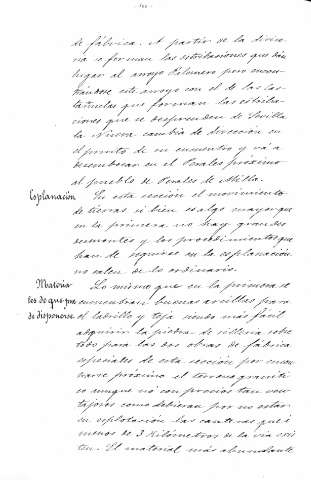 de fábrica. A partir de la divisoria se forman las estribaciones que dan
lugar al arroyo Palomero pero encon-
trándose este arroyo con el de las Cas-
tañuelas que forman las estriba-
ciones que se desprenden de Sevilla
la Nueva cambia de dirección en
el punto de su encuentro y vá á
desembocar en el Perales próximo
al pueblo de Perales de Milla.
Esplanación En esta sección el movimiento
de tierras si bien es algo mayor que
en la primera no hay grandes
desmontes y los procedimientos que
han de seguirse en la esplanación
no salen de lo ordinario.
Materia- Lo mismo que en la primera se
les de que pue- encuentran buenas arcillas para
de disponerse el ladrillo y teja siendo más fácil
adquirir la piedra de sillería sobre
todo para las dos obras de fábrica
especiales de esta sección por encon-
trarse próximo el terreno graníti-
co aunque no con precios tan ven-
tajosos como debieran por no estar
en esplotación las canteras que á
menos de 3 kilómetros de la vía exis-
ten. El material más abundante